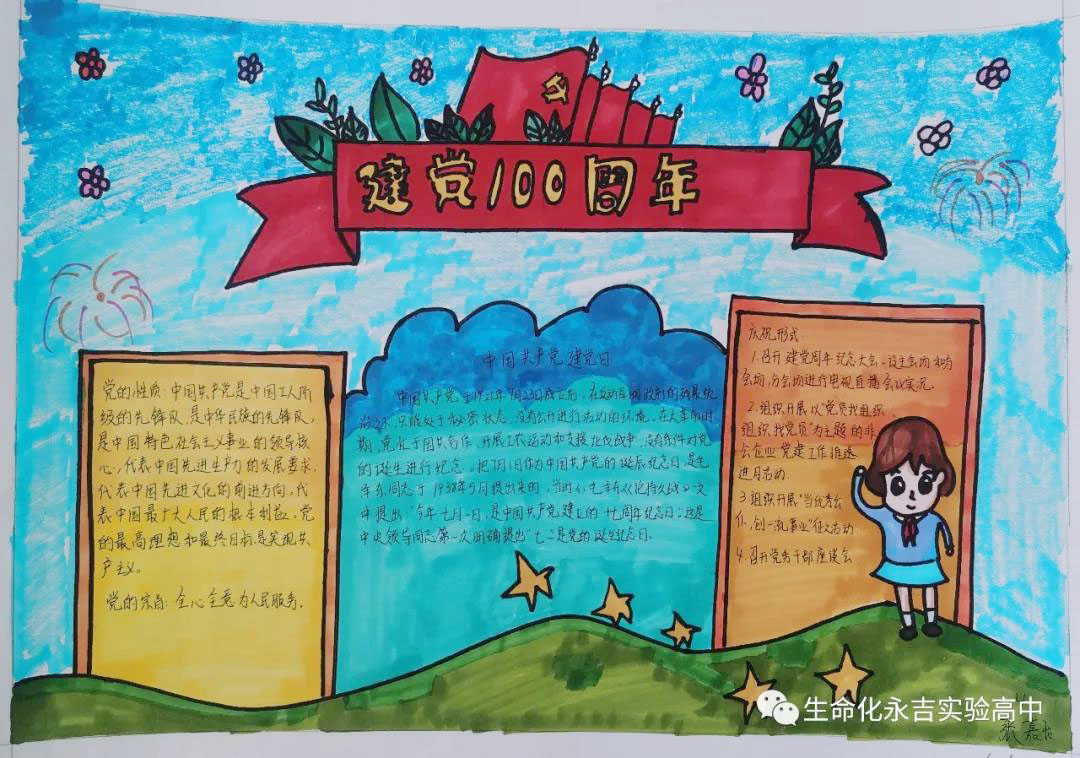 建党100周年
党的性质：中国共产党是中国工人阶
级的先锋队，是中华民族的先锋队，
是中国特色社会主义事业的领导核
心，代表中国先进生产力的发展要求，
代表中国先进文化的前进方向，代
表中国最广大人民的根本利益。党
的最高理想和最终目标是实现共
产主义。
党的宗旨：全心全意为人民服务。
中国共产党建党日
中国共产党于1921年7月23日成立后，在反动军阀政府的残暴统
治之下，只能处于秘密状态，没有公开进行活动的环境。在大革命时
期，党忙于国共合作、开展工农运动和支援北伐战争，没有条件对党
的诞生进行纪念。把7月1日作为中国共产党的诞辰纪念日，是毛
泽东同志于1938年5月提出来的。当时，毛泽东《论持久战》一文
中提出："今年七月一日，是中国共产党建立的十七周年纪念日"，这是
中央领导同志第一次明确提出"七一"是党的诞生纪念日。
庆祝形式：
1.召开建党周年纪念大会。设主会场和分
会场，分会场进行电视直播会议实况。
2.组织开展以"党员找组织、
组织找党员"为主题的非
公企业党建工作推进
进月活动.
3.组织开展"当优秀公
仆，创一流事业"征文活动
4.召开党务干部座谈会
生命化永吉实验高中